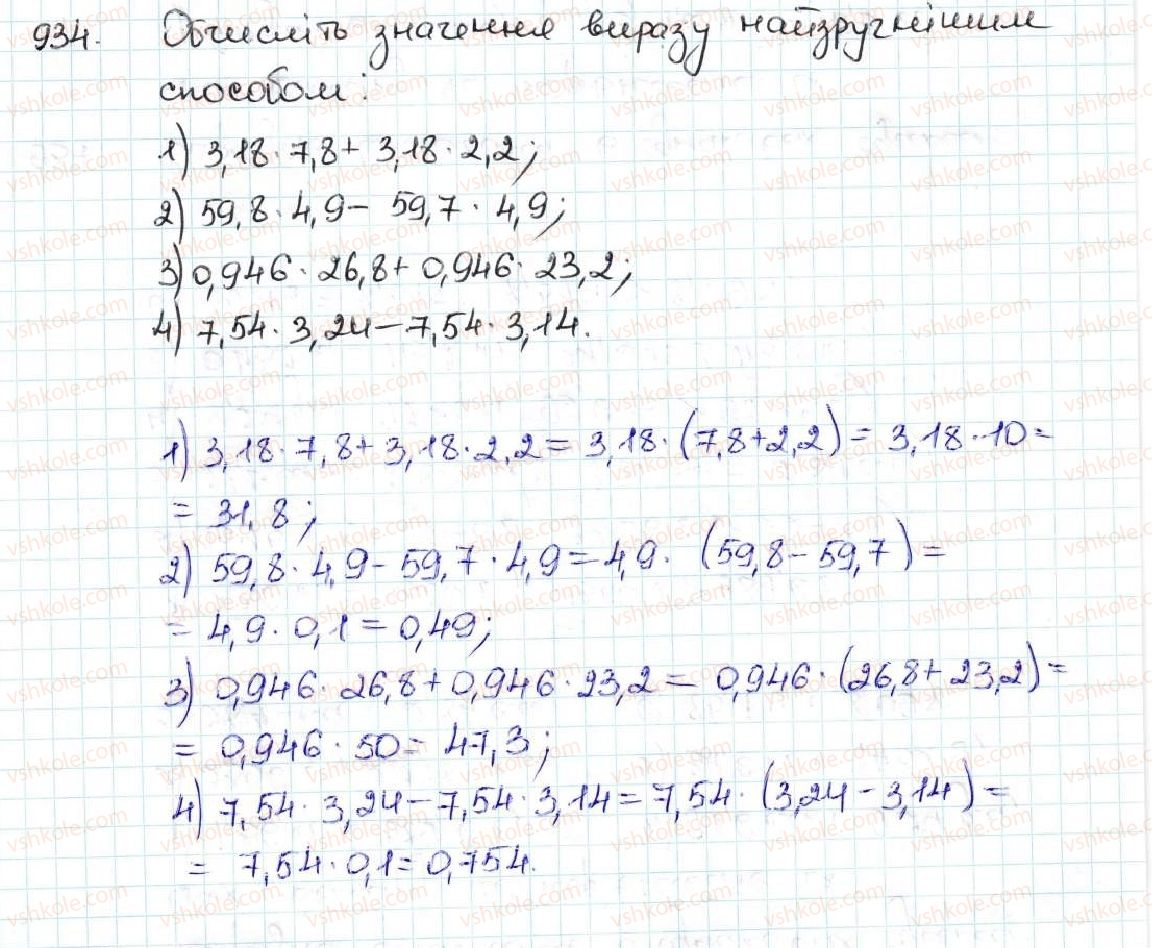 934. Обчисліть значення виразу найзручнішим
способом:
1) 3,18 · 7,8 + 3,18 · 2,2;
2) 59,8 · 4,9 - 59,7 · 4,9;
3) 0,946 · 26,8 + 0,946 · 23,2;
4) 7,54 · 3,24 - 7,54 · 3,14.
1) 3,18 · 7,8 + 3,18 · 2,2 = 3,18 · (7,8 + 2,2) = 3,18 · 10 =
= 31,8;
2) 59,8 · 4,9 - 59,7 · 4,9 = 4,9 · (59,8 - 59,7) =
= 4,9 · 0,1 = 0,49;
3) 0,946 · 26,8 + 0,946 · 23,2 = 0,946 · (26,8 + 23,2) =
= 0,946 · 50 = 47,3;
4) 7,54 · 3,24 - 7,54 · 3,14 = 7,54 · (3,24 - 3,14) =
= 7,54 · 0,1 = 0,754.